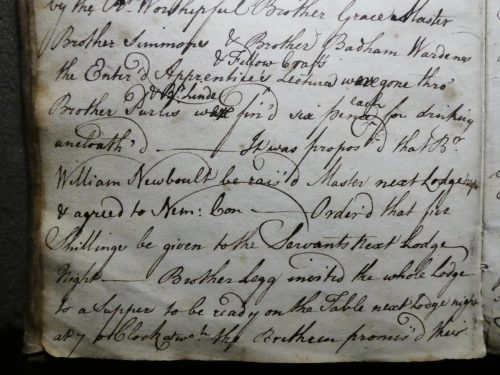 by the Rt. Worshipful Brother Grace Master
Brother Simmons & Brother Badham Wardens
& Fellow Craft
the Enter'd Apprentice's Lecture were gone thro'
& Br. Lunde each
Brother Purlis were fin'd six pence for drinking
uncloath'd — It was propos'd that Br.
William Newboult be rais'd Master next Lodge night
& agreed to Nem: Con — Order'd that five
Shillings be given to the Servants next Lodge
Night — Brother Legg invited the whole Lodge
to a Supper to be ready on the Table next Lodge night
at 7 o'Clock at wch. the Brethren promis'd their